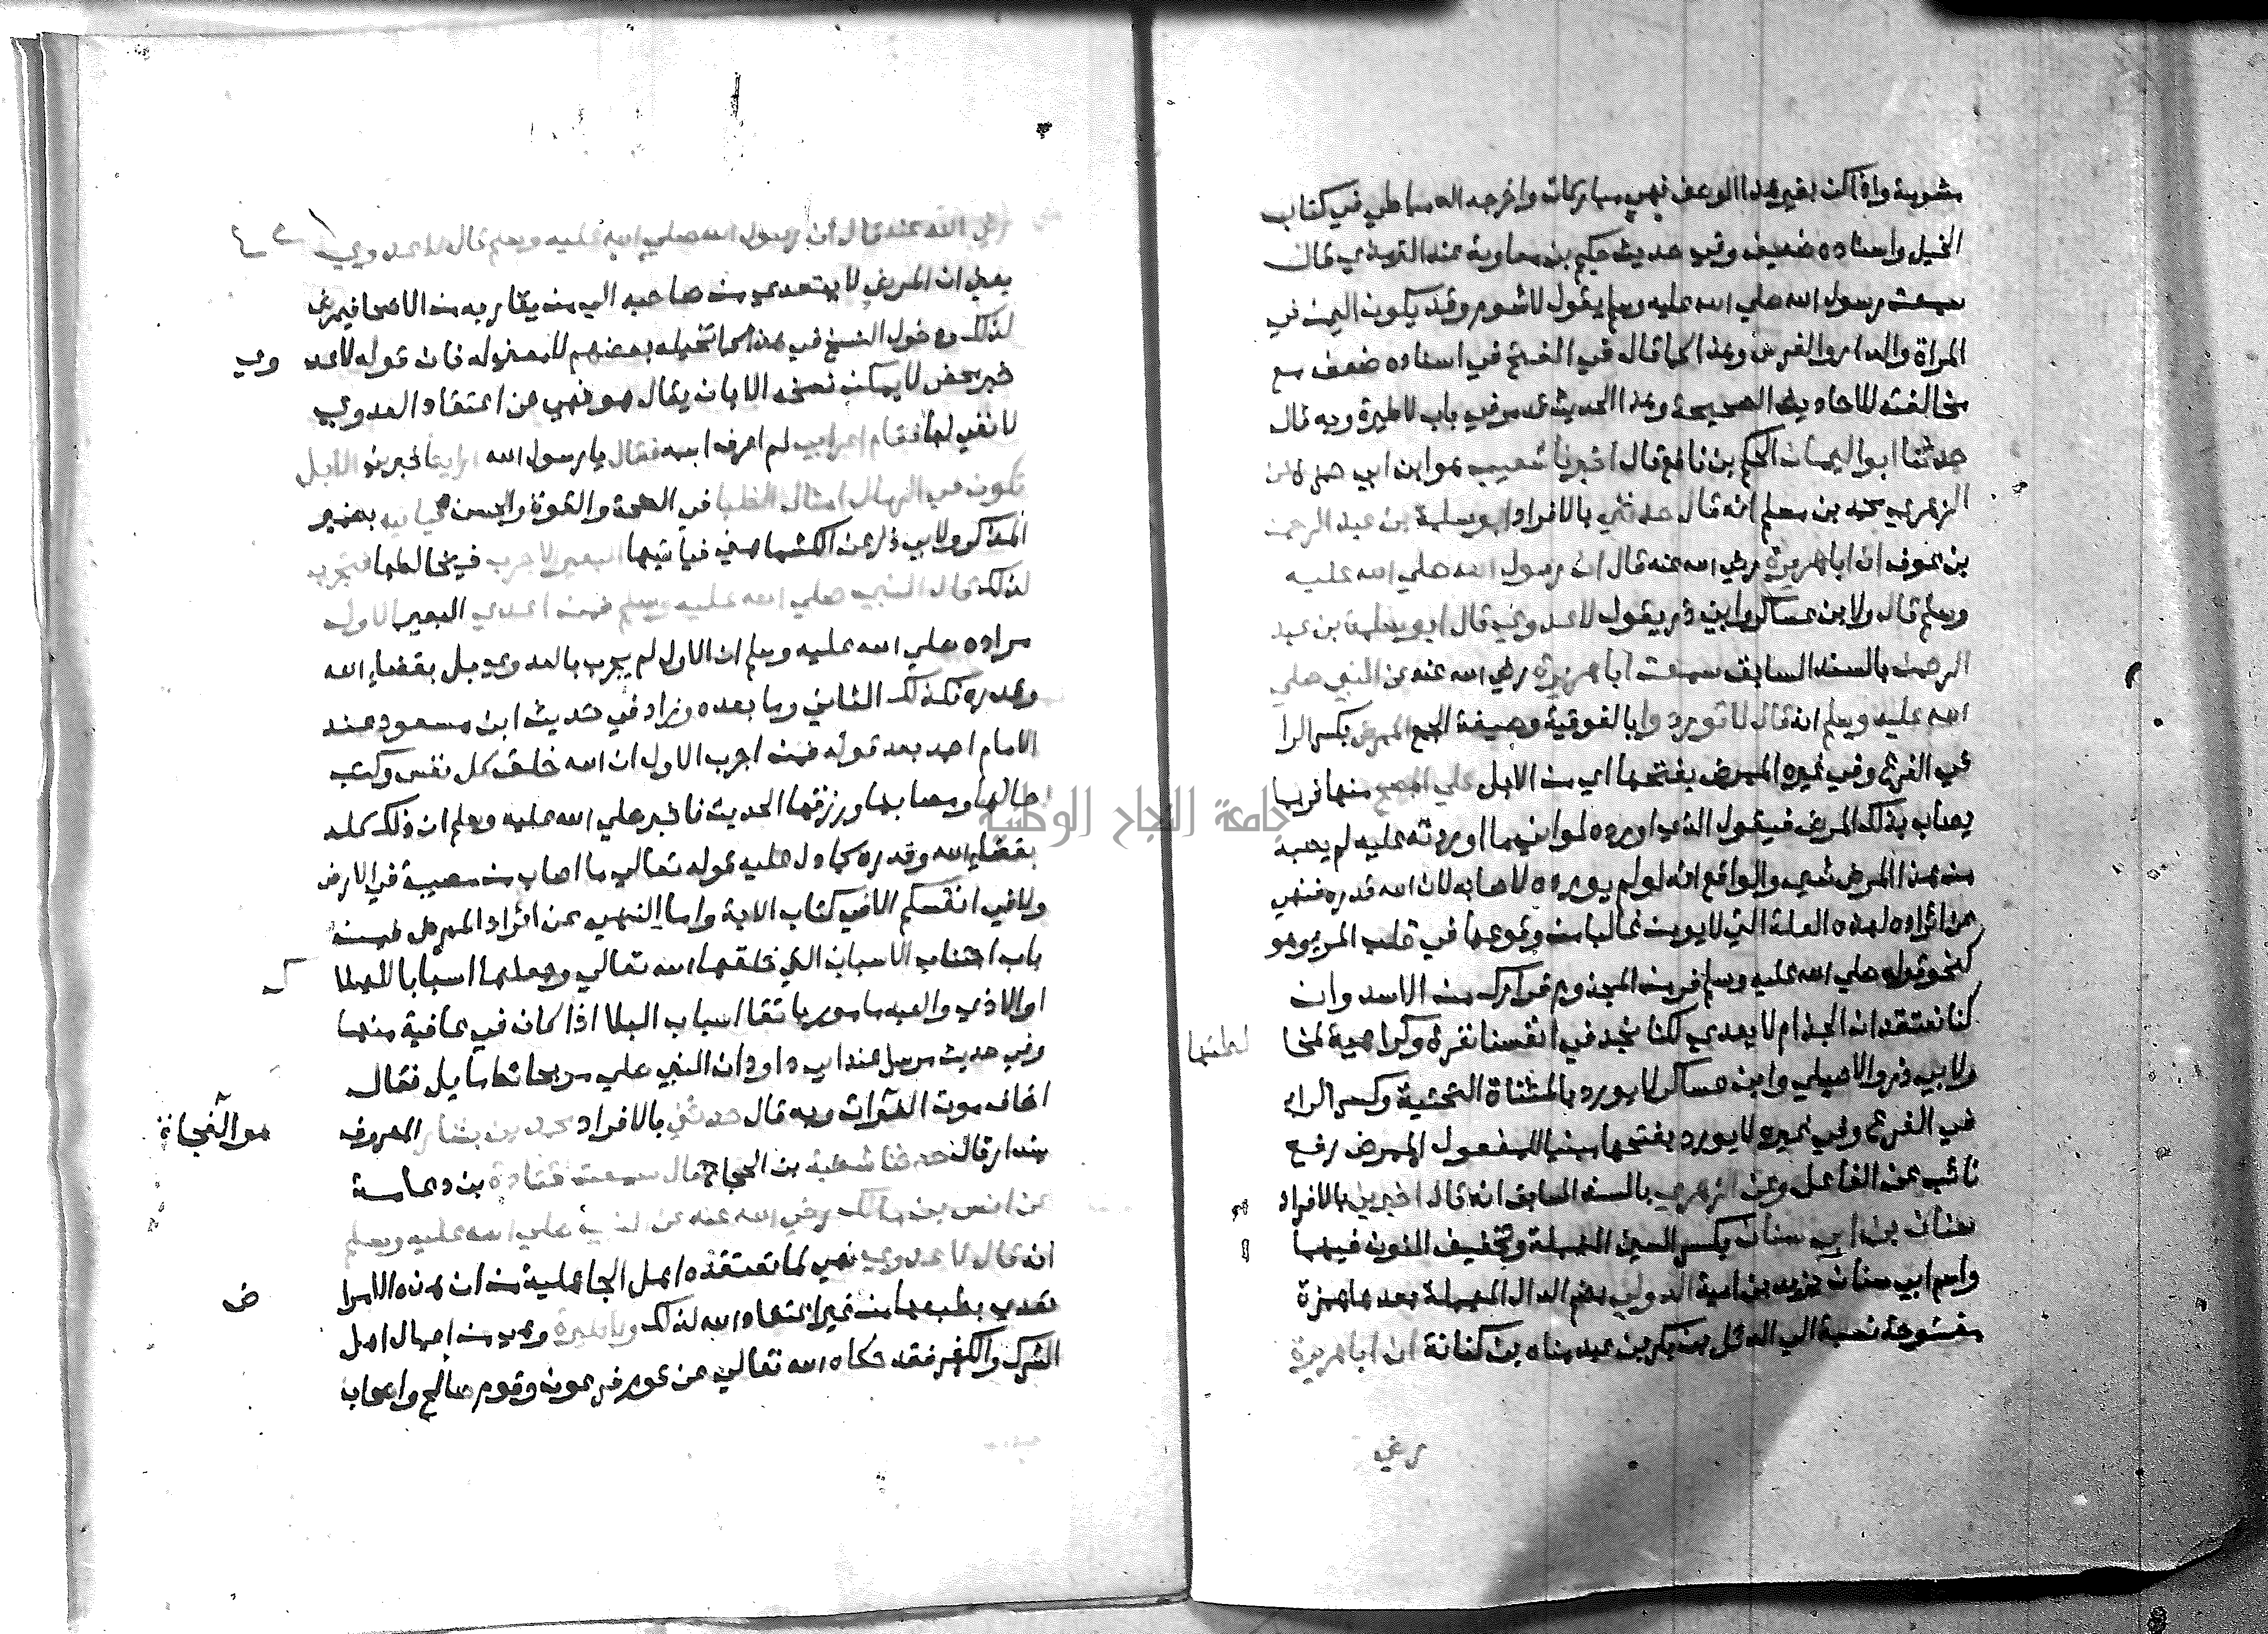 مشومة واذا كن بغير هذا الوصف فهي مباركات واخرجه الدمياطي في كتاب
الخيل واسناده ضعيف وفي حديث حكيم بن معاوية عند الترمذي قال
سمعت رسول الله صلي الله عليه وسلم يقول لا شوم وقد يكون اليمن في
المراة والدار والفرس وهذا كما قال في الفتح في اسناده ضعف مع
مخالفته للاحاديث الصحيحة وهذا الحديث مر في باب لا طيرة وبه قال
حدثنا ابو اليمان الحكم بن نافع قال اخبرنا شعيب هو ابن ابي حمزة عن
الزهري محمد بن مسلم انه قال حدثني بالافراد ابو سلمة بن عبد الرحمن
بن عوف ان ابا هريرة رضي الله عنه قال ان رسول الله صلي الله عليه
وسلم قال ولابن عساكر وابي ذر يقول لا عدوي قال ابو سلمة بن عبد
الرحمن بالسند السابق سمعت ابا هريرة رضي الله عنه عن النبي صلي
الله عليه وسلم انه قال لا توردوا بالفوقية وصيغة الجمع الممرض بكسر الرا
في الفرع وفي غيره الممرض بفتحها اي من الابل علي المصح منها فربما
يصاب بذلك المرض فيقول الذي اورده لو اني ما اوردته عليه لم يصبه
من هذا المرض شي والواقع انه لو لم يورده لاصابه لان الله قدره فنهي
عن ايراده لهذه العلة التي لا يومن غالبا من وقوعها في قلب المر وهو
كنحو قوله صلي الله عليه وسلم فر من المجذوم فرارك من الاسد وان
كنا نعتقد ان الجذام لا يعدي لكنا نجد في انفسنا نفرة وكراهية لمخا
لطتها
ولابي ذر والاصيلي وابن عساكر لا يورد بالمثناة التحتية وكسر الرا
في الفرع وفي غيره لا يورد بفتحها مبنيا للمفعول الممرض رفع
نائب عن الفاعل وعن الزهري بالسند السابق انه قال اخبرني بالافراد
سنان بن ابي سنان بكسر السين المهملة وتخفيف النون فيهما
واسم ابي سنان يزيد بن امية الدولي بضم الدال المهملة بعدها همزة
مفتوحة نسبة الي الدئل بن بكر بن عبد مناه بن كنانة ان ابا هريرة
رضي
رضي الله عنه قال ان رسول الله صلي الله عليه وسلم قال لا عدوي
يعني ان المرض لا يتعدي من صاحبه الي من يقاربه من الاصحا فيمرض
لذلك ودخول النسخ في هذا كما تخيله بعضهم لا معني له فان قوله لا عد وي
خبر محض لا يمكن نسخه الا بان يقال هو نهي عن اعتقاد العدوي
لا نفي لها فقام اعرابي لم اعرف اسمه فقال يا رسول الله ارايت اخبرني الابل
تكون في الرمال امثال الظبا في الصحة والقوة والحسن بضمير
المذكر ولابي ذر عن الكشميهني فياتيها البعير الاجرب فيخالطها فتجرب
لذلك قال النبي صلي الله عليه وسلم فمن اعدي البعير الاول
مراده صلي الله عليه وسلم ان الاول لم يجرب بالعدوي بل بقضاء الله
وقدره فكذلك الثاني وما بعده وزاد في حديث ابن مسعود عند
الامام احمد بعد قوله فمن اجرب الاول ان الله خلق كل نفس وكتب
حالها ومصابها ورزقها الحديث فاخبر صلي الله عليه وسلم ان ذلك كله
بقضاء الله وقدره كما دل عليه قوله تعالي ما اصاب من مصيبة في الارض
ولا في انفسكم الا في كتاب الاية واما النهي عن ايراد الممرض فمن
باب اجتناب الاسباب التي خلقها الله تعالي وجعلها اسبابا للهلا ك
او الاذي والعبد مامور باتقا اسباب البلا اذا كان في عافية منها
وفي حديث مرسل عند ابي داود ان النبي صلي مر بحائط مايل فقال
اخاف موت الفوات وبه قال حدثني بالافراد محمد بن بشار المعروف
هو الفجاة
بندار قال حدثنا شعبة بن الحجاج قال سمعت قتادة بن دعامة
عن انس بن مالك رضي الله عنه عن النبي صلي الله عليه وسلم
انه قال لا عدوي نهي لما تعتقده اهل الجاهلية من ان هذه الامرا ض
تعدي بطبعها من غير اعتقاد الله لذلك ولا طيرة وهي من اعمال اهل
الشرك والكفر فقد حكاه الله تعالي عن قوم فرعون وقوم صالح واصحاب
جامعة النجاح الوطنية